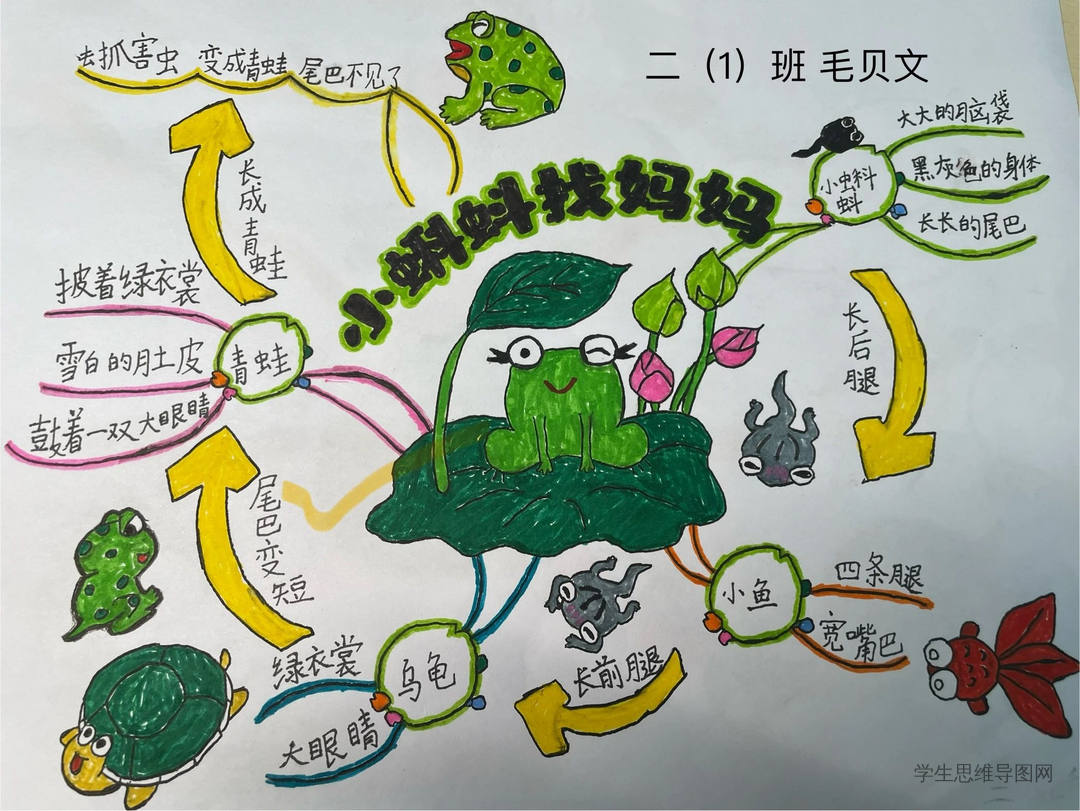 去抓害虫 变成青蛙 尾巴不见了
二（1）班 毛贝文
小蝌蚪找妈妈
小虫科
蚪
大大的脑袋
黑灰色的身体
长长的尾巴
长后腿
小鱼
四条腿
宽嘴巴
长前腿
乌龟
绿衣裳
大眼睛
尾巴变短
青蛙
披着绿衣裳
雪白的肚皮
鼓着一双大眼睛
长成青蛙
学生思维导图网